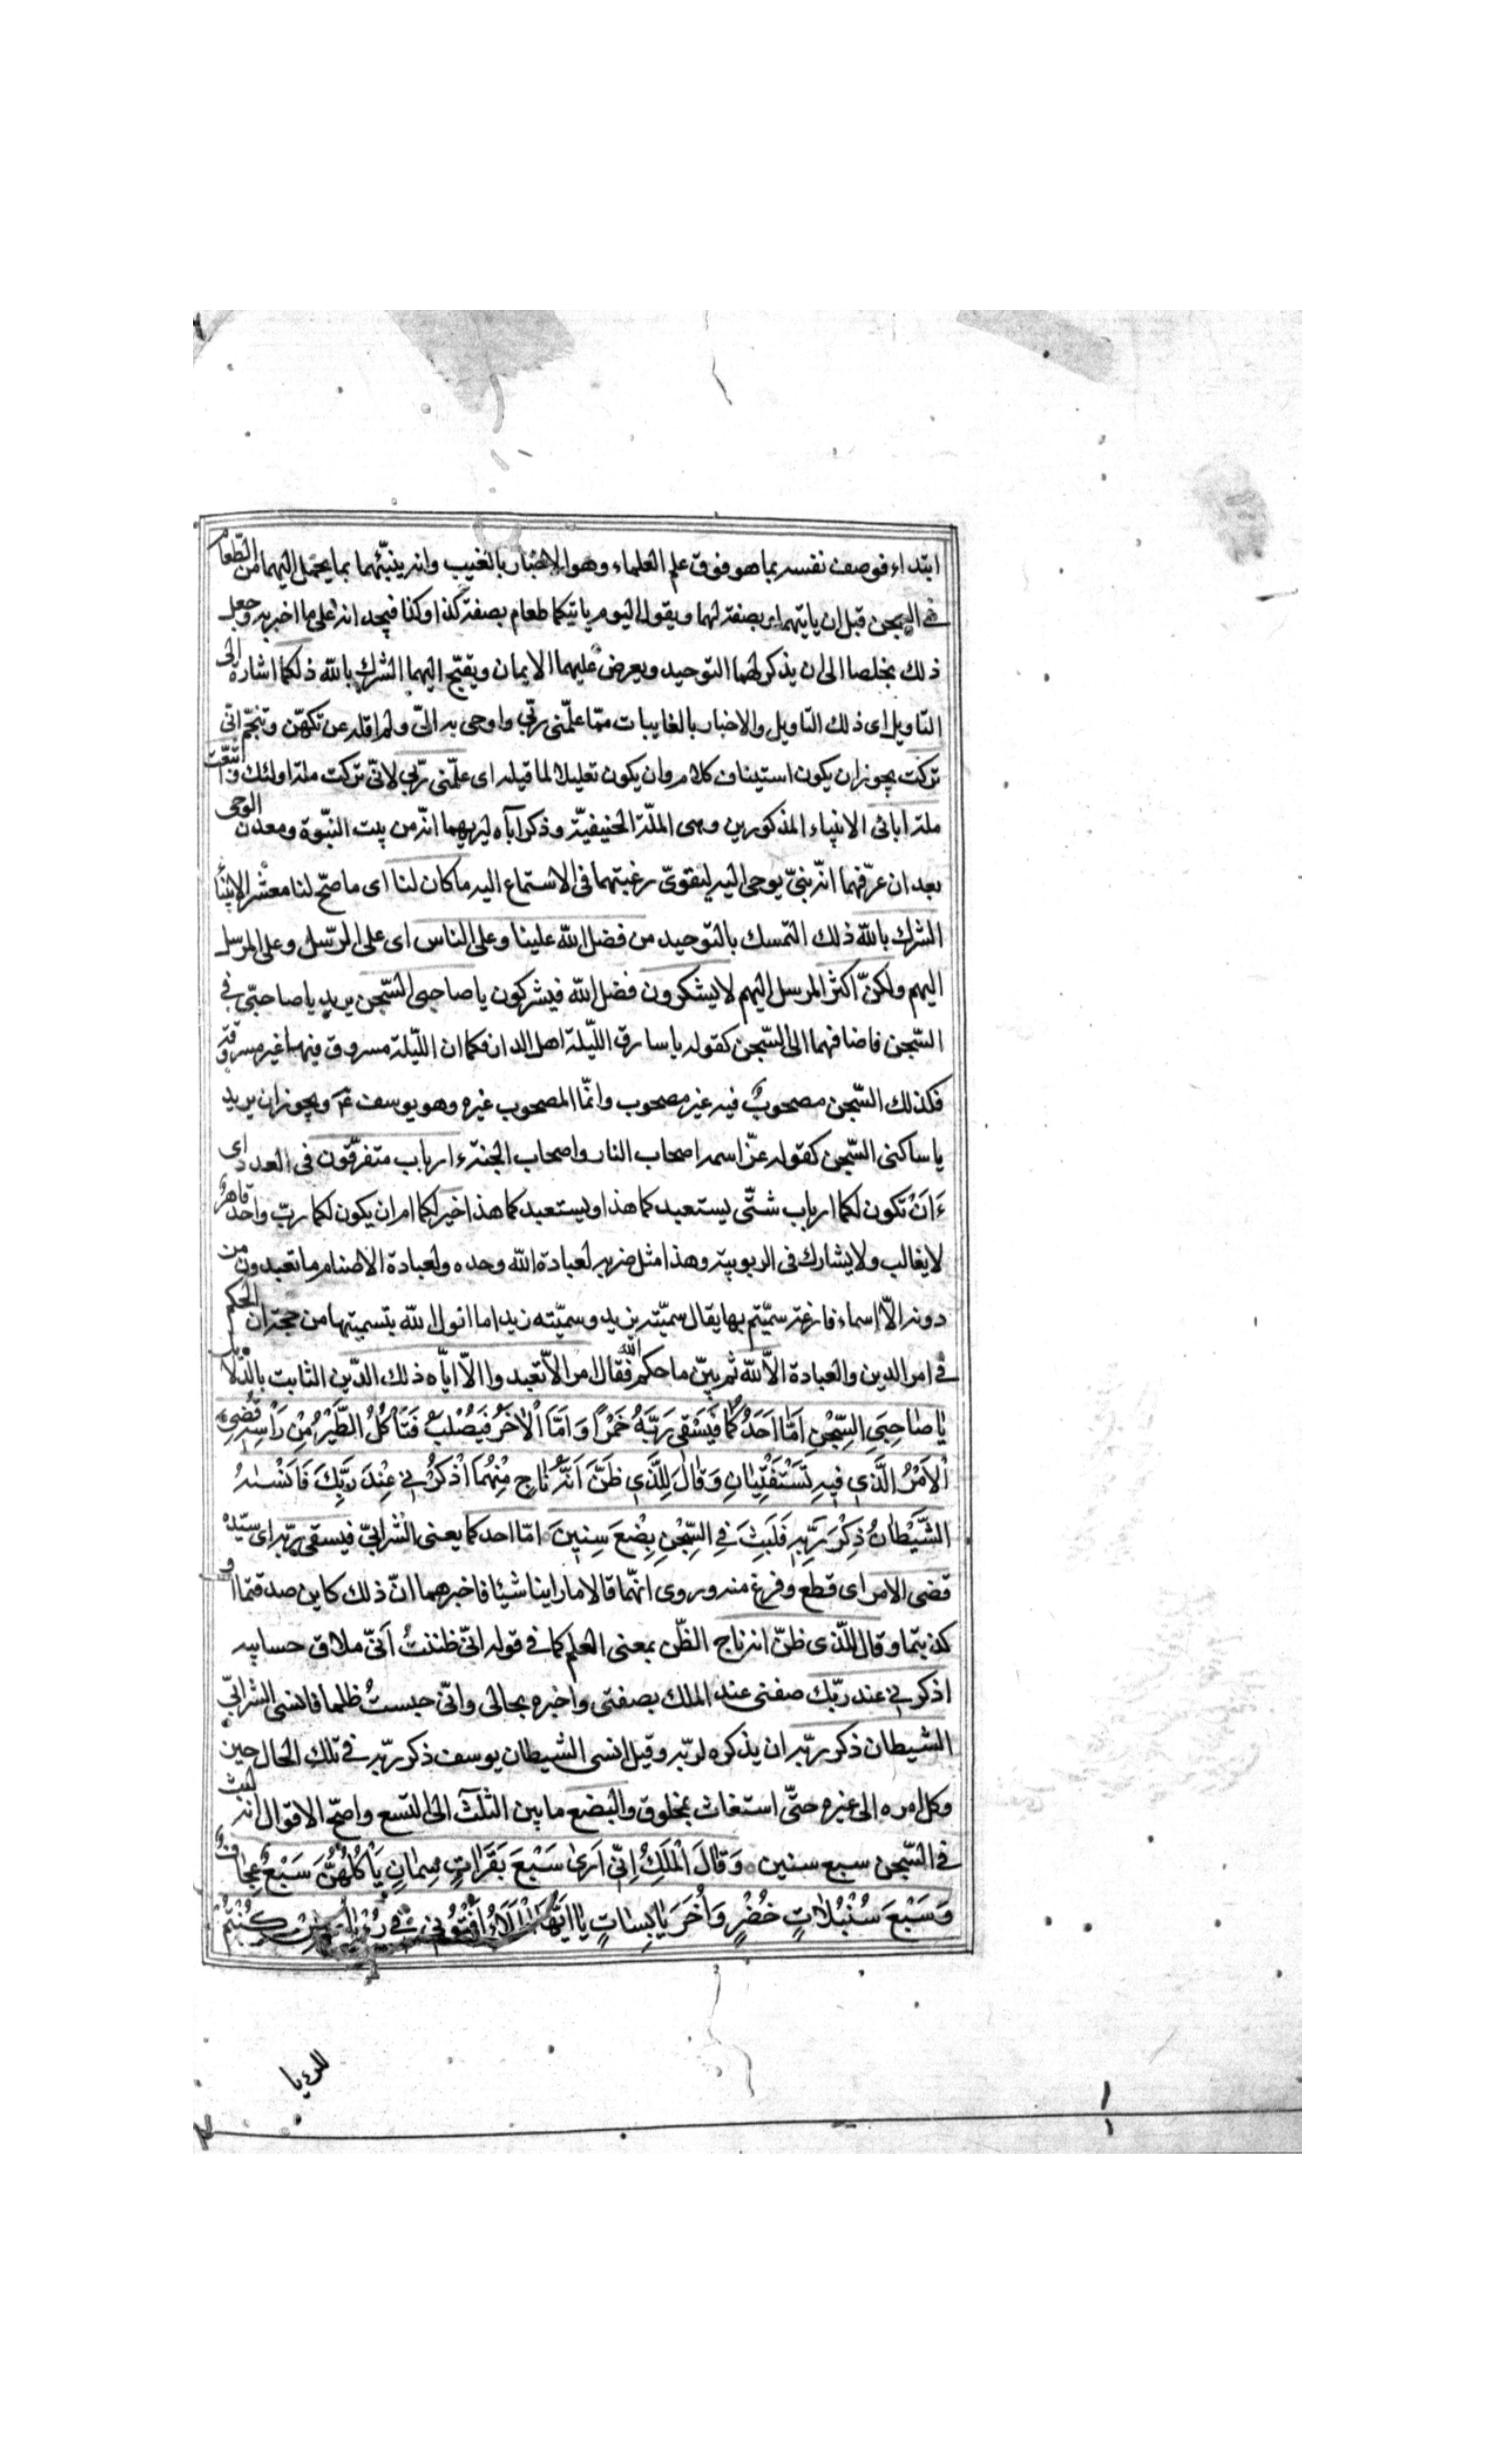 ابتداء فوصف نفسه بما هو فوق علم العلماء وهو الاخبار بالغيب وانه ينبّئهما بما يحمل اليهما من الطّعام
في السجن قبل ان ياتيهما ويصفه لهما ويقول اليوم ياتيكما طعام بصفة كذا وكذا فيجدانه على ما اخبر به وجعل
ذلك مخلصا الى ان يذكر لهما التوحيد ويعرض عليهما الايمان ويقبّح اليهما الشرك بالله ذلكما اشارة الى
التاويل اى ذلك التاويل والاخبار بالغايبات ممّا علّمنى ربّي واوحى به الىّ ولم اقله عن تكهّن وتنجّم انّى
تركت يجوز ان يكون استيناف كلام وان يكون تعليلا لما قبله اى علّمنى ربّي لانّى تركت ملة اولئك واتّبعت
ملة ابائى الانبياء المذكورين وهى الملّة الحنيفيّة وذكر اباه ليريهما انّه من بيت النبّوة ومعدن الوحى
بعد ان عرّفهما انّه نبىّ يوحى اليه ليقوىّ رغبتهما فى الاستماع اليه ما كان لنا اى ما صحّ لنا معشر الانبياء
الشرك بالله ذلك التمسك بالتوحيد من فضل الله علينا وعلى الناس اى على الرسل وعلى المرسل
اليهم ولكنّ اكثر المرسل اليهم لا يشكرون فضل الله فيشركون يا صاحبى السّجن يريد يا صاحبىّ في
السّجن فاضافهما الى السّجن كقوله يا سارق اللّيلة اهل الدار فكما ان اللّيلة مسروق فيها غير مسروقة
فكذلك السّجن مصحوبٌ فيه غير مصحوب وانّما المصحوب غيره وهو يوسف ع ويجوز ان يريد
يا ساكنى السّجن كقوله عزّ اسمه اصحاب النار واصحاب الجنة ءارباب متفرّقون فى العدد اى
ءَاَنْ تَكون لكما ارباب شتّى يستعبدكما هذا ويستعبدكما هذا خير لكما ام ان يكون لكما ربّ واحد قاهرٌ
لا يغالب ولا يشارك فى الربوبية وهذا مثل ضربه لعبادة الله وحده ولعبادة الاصنام ما تعبدون من
دونه الاّ اسماء فارغة سمّيتم بها يقال سمّيته بزيد وسمّيته زيدا ما انزل الله بتسميتها من حجة ان الحكم
في امر الدين والعبادة الاّ لله ثم بيّن ما حكم الله فقال امر الاّ تعبدوا الاّ ايّاه ذلك الدّين الثابت بالدّلايل
يٰا صٰاحِبَىِ السِّجْنِ اَمّٰا اَحَدُكُمٰا فَيَسْقى رَبَّهُ خَمْرًا وَاَمَّا اْلاٰخَرُ فَيُصْلَبُ فَتَأكُلُ الطَّيْرُ مِنْ رَأسِهِ قُضِىَ
اْلاَمْرُ الَّذى فيهِ تَسْتَفْتِيٰانِ وَقٰالَ لِلَّذى ظَنَّ اَنَّهُ نٰاجٍ مِنْهُمَا اذْكُرْنى عِنْدَ رَبِّكَ فَاَنْسٰيهُ
الشَّيْطٰانُ ذِكْرَ رَبِّهِ فَلَبِثَ فِى السِّجْنِ بِضْعَ سِنينَ امّا احدكما يعنى الشرابىّ فيسقى ربّه اى سيّده
قضى الامر اى قطع وفرغ منه وروى انّهما قالا ما راينا شيئا فاخبرهما انّ ذلك كاين صدقتما او
كذبتما وقال للّذى ظنّ انه ناج الظّن بمعنى العلم كما في قوله انّى ظننتُ اَنّى ملاق حسابيه
اذكرنى عند ربّك صفنى عند الملك بصفتى واخبره بحالى وانّى حبستُ ظلما فانسى الشرابىّ
الشيطان ذكر ربّه ان يذكره لربّه وقيل انسى الشيطان يوسف ذكر ربّه في تلك الحال حين
وكل امره الى غيره حتّى استغاث بمخلوق والبضع ما بين الثلث الى التسع واصحّ الاقوال انه لبث
فى السّجن سبع سنين وَقٰالَ الْمَلِكُ اِنّى اَرىٰ سَبْعَ بَقَرٰاتٍ سِمٰانٍ يَأكُلُهُنَّ سَبْعٌ عِجٰافٌ
وَسَبْعَ سُنْبُلاٰتٍ خُضْرٍ وَاُخَرَ يٰابِسٰاتٍ يٰا اَيُّهَا الْمَلَأُ اَفْتُونى فى رُءْيٰاىَ اِنْ كُنْتُمْ
للرءيا